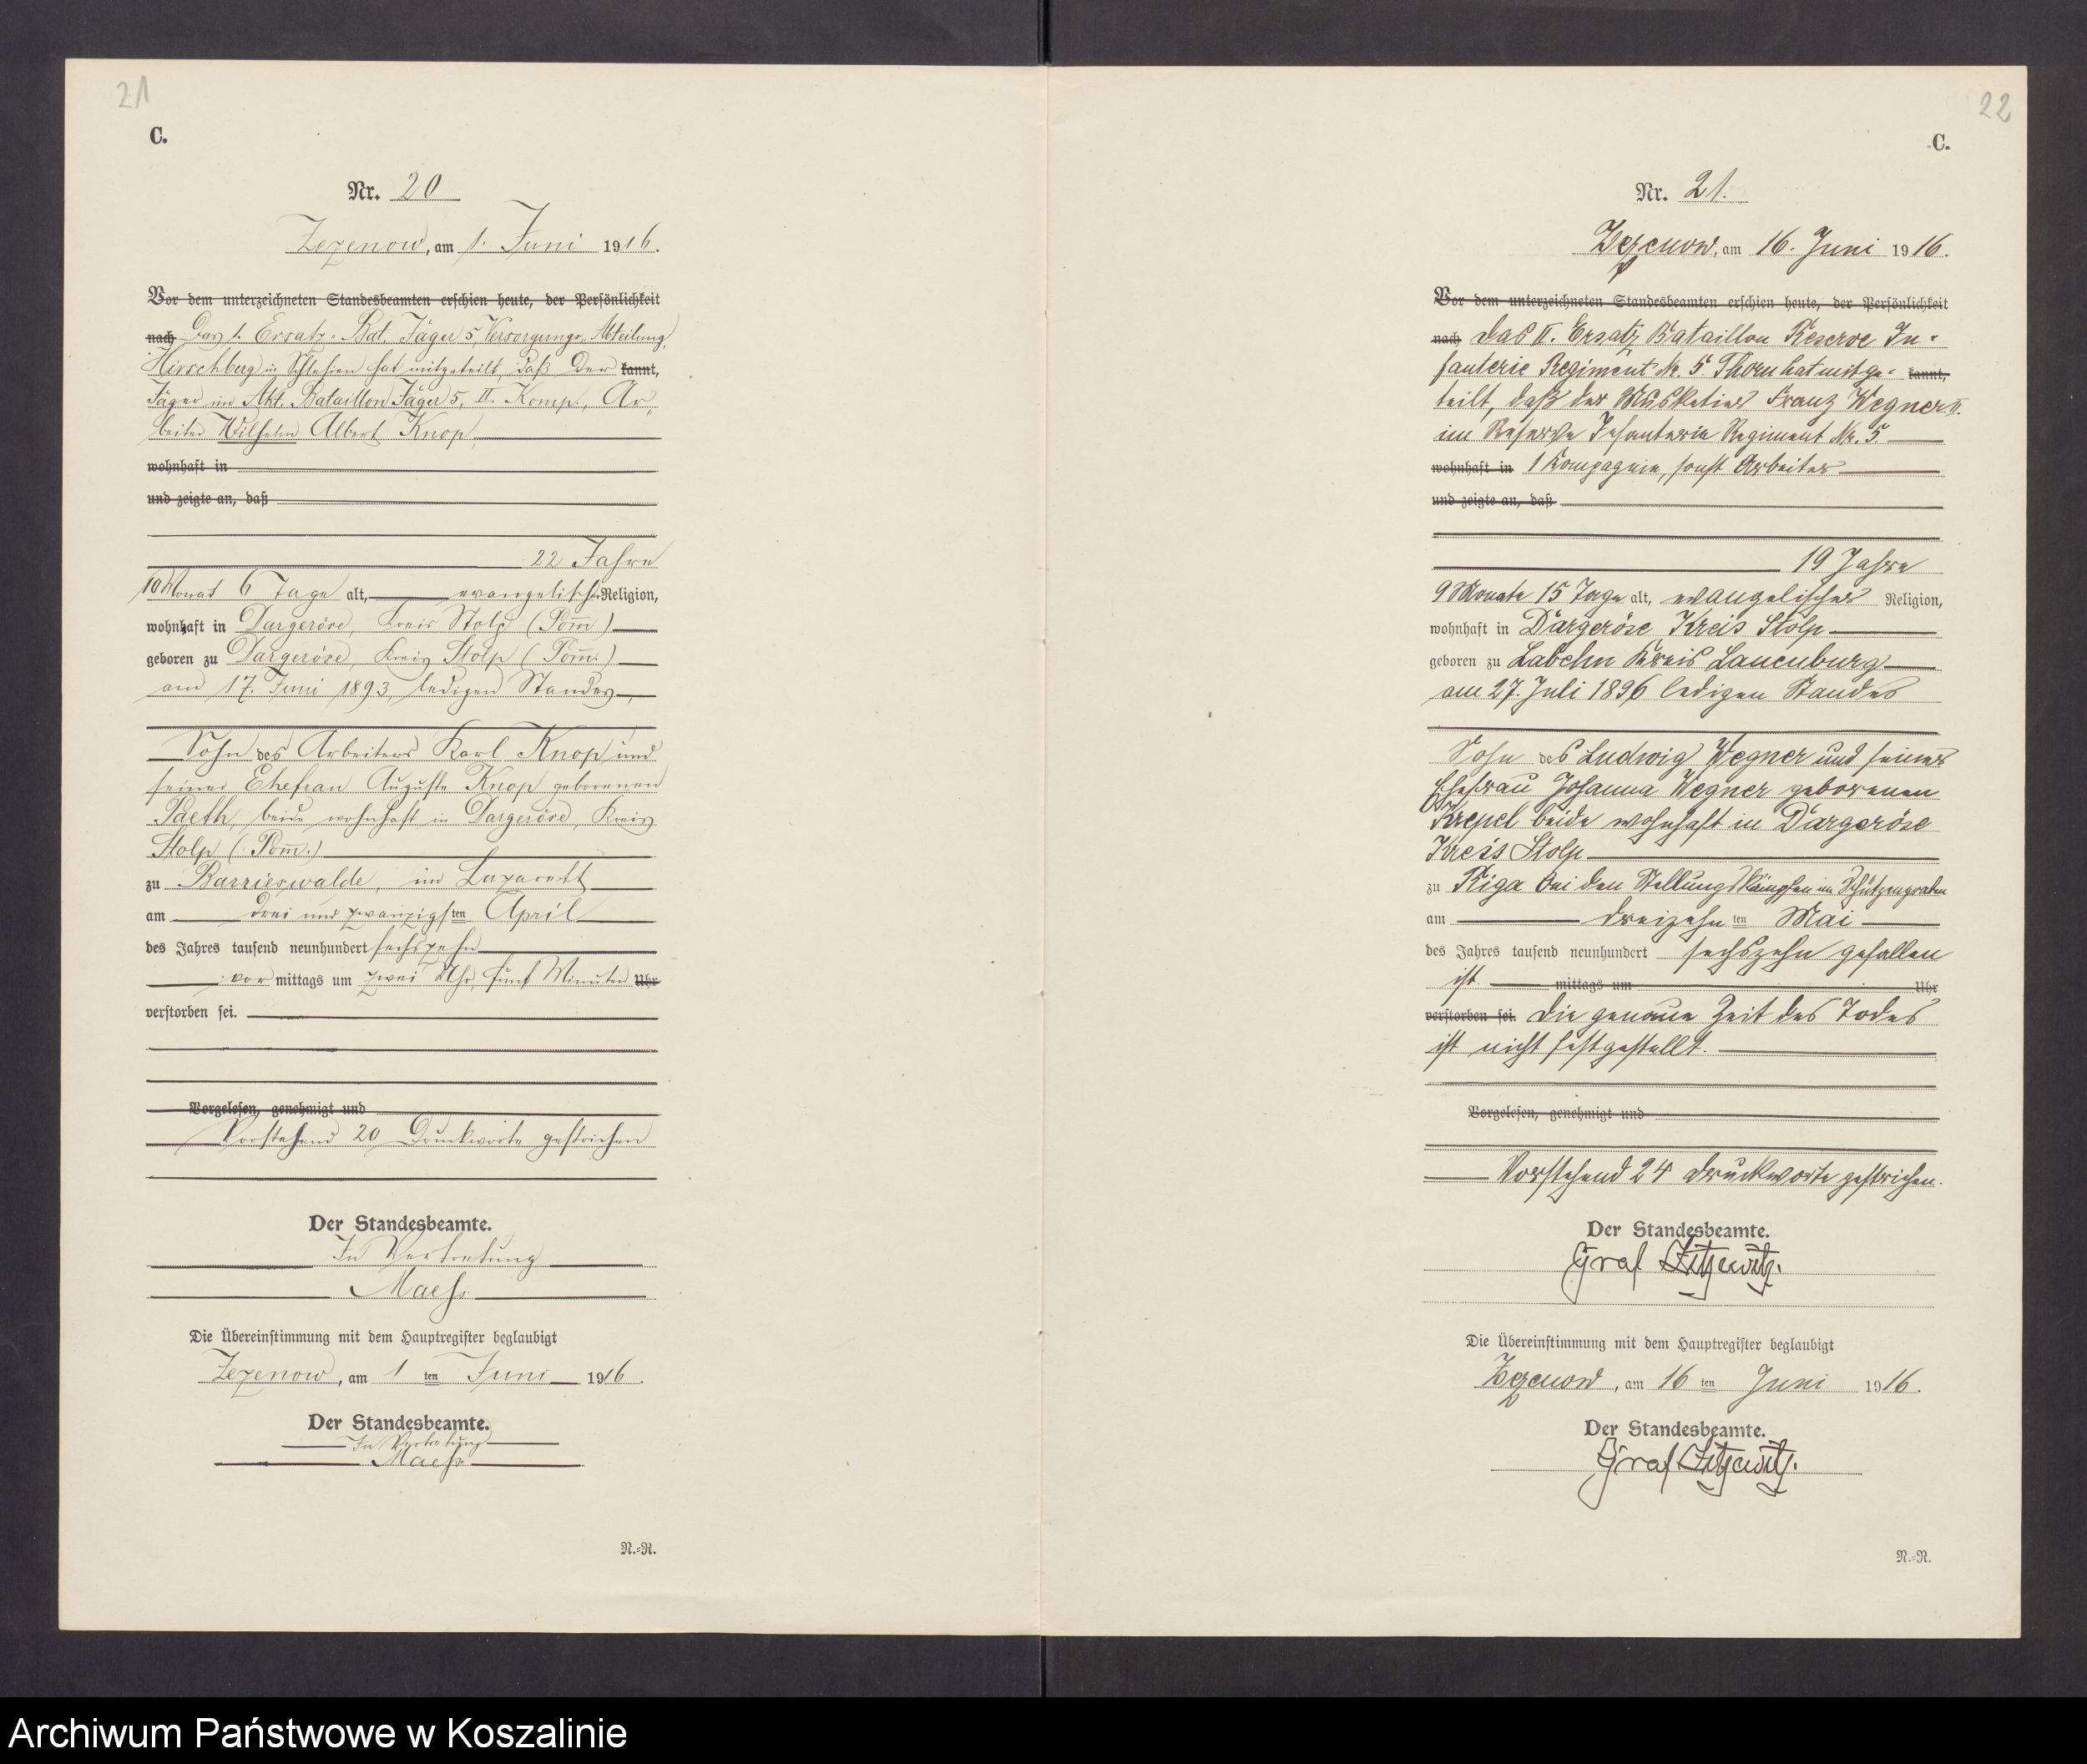 21
C.
Nr. 20
Zezenow, am 1. Juni 1916.
Vor dem unterzeichneten Standesbeamten erschien heute, der Persönlichkeit
nach Das 1. Ersatz-Bat. Jäger 5, Versorgungs-Abteilung,
Hirschberg in Schlesien hat mitgeteilt, daß Der kannt,
Jäger im Akt. Bataillon Jäger 5, II. Komp., Ar-
beiter Wilhelm Albert Knop,
wohnhaft in
und zeigte an, daß
22 Jahre
10 Monat 6 Tage alt, evangelischer Religion,
wohnhaft in Dargeröse, Kreis Stolp (Pom̅)
geboren zu Dargeröse, Kreis Stolp (Pom̅.)
am 17. Juni 1893, ledigen Standes,
Sohn des Arbeiters Karl Knop und
seiner Ehefrau Auguste Knop geborenen
Paeth, beide wohnhaft in Dargeröse, Kreis
Stolp (Pom̅.)
zu Barrieswalde, im Lazarett
am drei und zwanzigsten April
des Jahres tausend neunhundert sechszehn
vor mittags um zwei Uhr, fünf Minuten Uhr
verstorben sei.
Vorgelesen, genehmigt und
Vorstehend 20 Druckworte gestrichen
Der Standesbeamte.
In Vertretung
Maeß
Die Übereinstimmung mit dem Hauptregister beglaubigt
Zezenow, am 1 ten Juni 1916.
Der Standesbeamte.
In Vertretung
Maeß
N.-R.
22
C.
Nr. 21.
Zezenow, am 16. Juni 1916.
Vor dem unterzeichneten Standesbeamten erschien heute, der Persönlichkeit
nach das II. Ersatz Bataillon Reserve In-
fanterie Regiment Nr. 5. Thorn hat mitge- kannt,
teilt, daß der Musketier Franz Wegner II.
im Reserve Infanterie Regiment Nr. 5.
wohnhaft in 1 Kompagnie, sonst Arbeiter
und zeigte an, daß
19 Jahre
9 Monate 15 Tage alt, evangelischer Religion,
wohnhaft in Dargeröse Kreis Stolp
geboren zu Labehn Kreis Lauenburg
am 27. Juli 1896 ledigen Standes
Sohn des Ludwig Wegner und seiner
Ehefrau Johanna Wegner geborenen
Krepel beide wohnhaft in Dargeröse
Kreis Stolp
zu Riga bei den Stellungskämpfen im Schützengraben
am dreizehn ten Mai
des Jahres tausend neunhundert sechszehn gefallen
ist mittags um Uhr
verstorben sei. Die genaue Zeit des Todes
ist nicht festgestellt.
Vorgelesen, genehmigt und
Vorstehend 24 Druckworte gestrichen.
Der Standesbeamte.
Graf Zitzewitz.
Die Übereinstimmung mit dem Hauptregister beglaubigt
Zezenow, am 16 ten Juni 1916.
Der Standesbeamte.
Graf Zitzewitz.
N.-R.
Archiwum Państwowe w Koszalinie